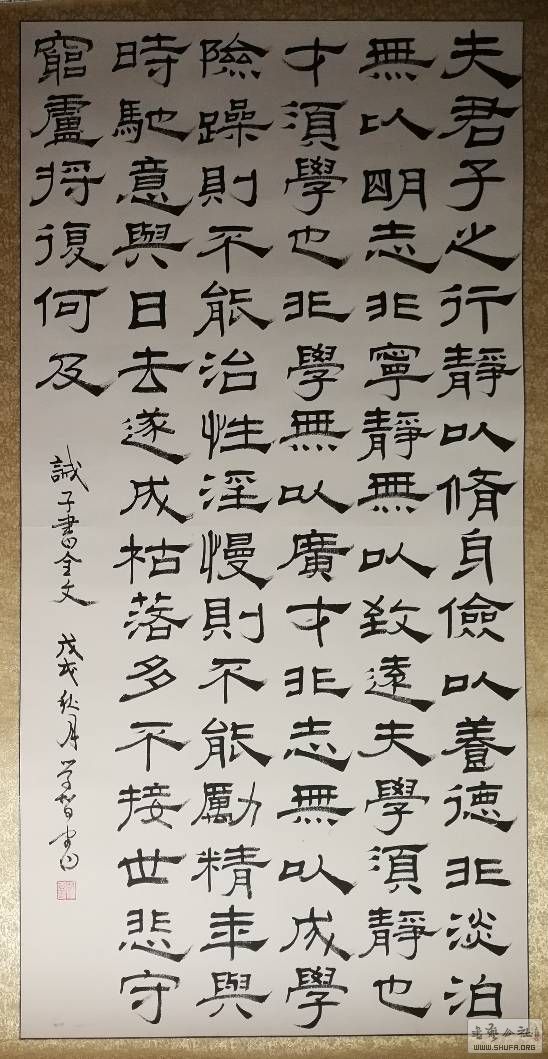 夫君子之行靜以脩身儉以養德非淡泊
無以明志非寧靜無以致遠夫學須靜也
才須學也非學無以廣才非志無以成學
險躁則不能治性淫慢則不能勵精年與
時馳意與日去遂成枯落多不接世悲守
窮盧將復何及
誡子書全文 戊戌秋月
书艺公社
WWW.SHUFA.ORG